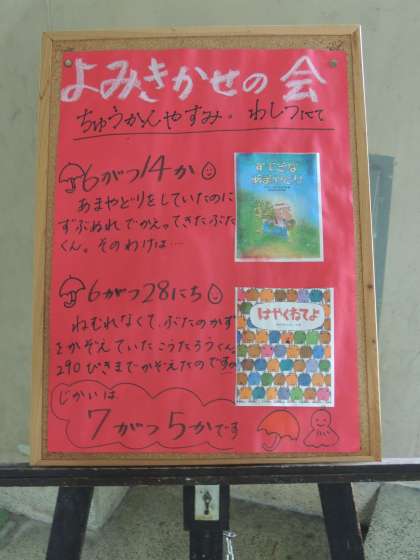 よみきかせの会
ちゅうかんやすみ。わしつにて
6がつ14か
あまやどりをしていたのに
ずぶぬれでかえってきたぶた
くん。そのわけは…
ふしぎな
あまやどり
6がつ28にち
ねむれなくて、ぶたのかず
をかぞえていたこうたろうくん。
290ぴきまでかぞえたのですの
はやくねてよ
じかいは
7がつ5かです